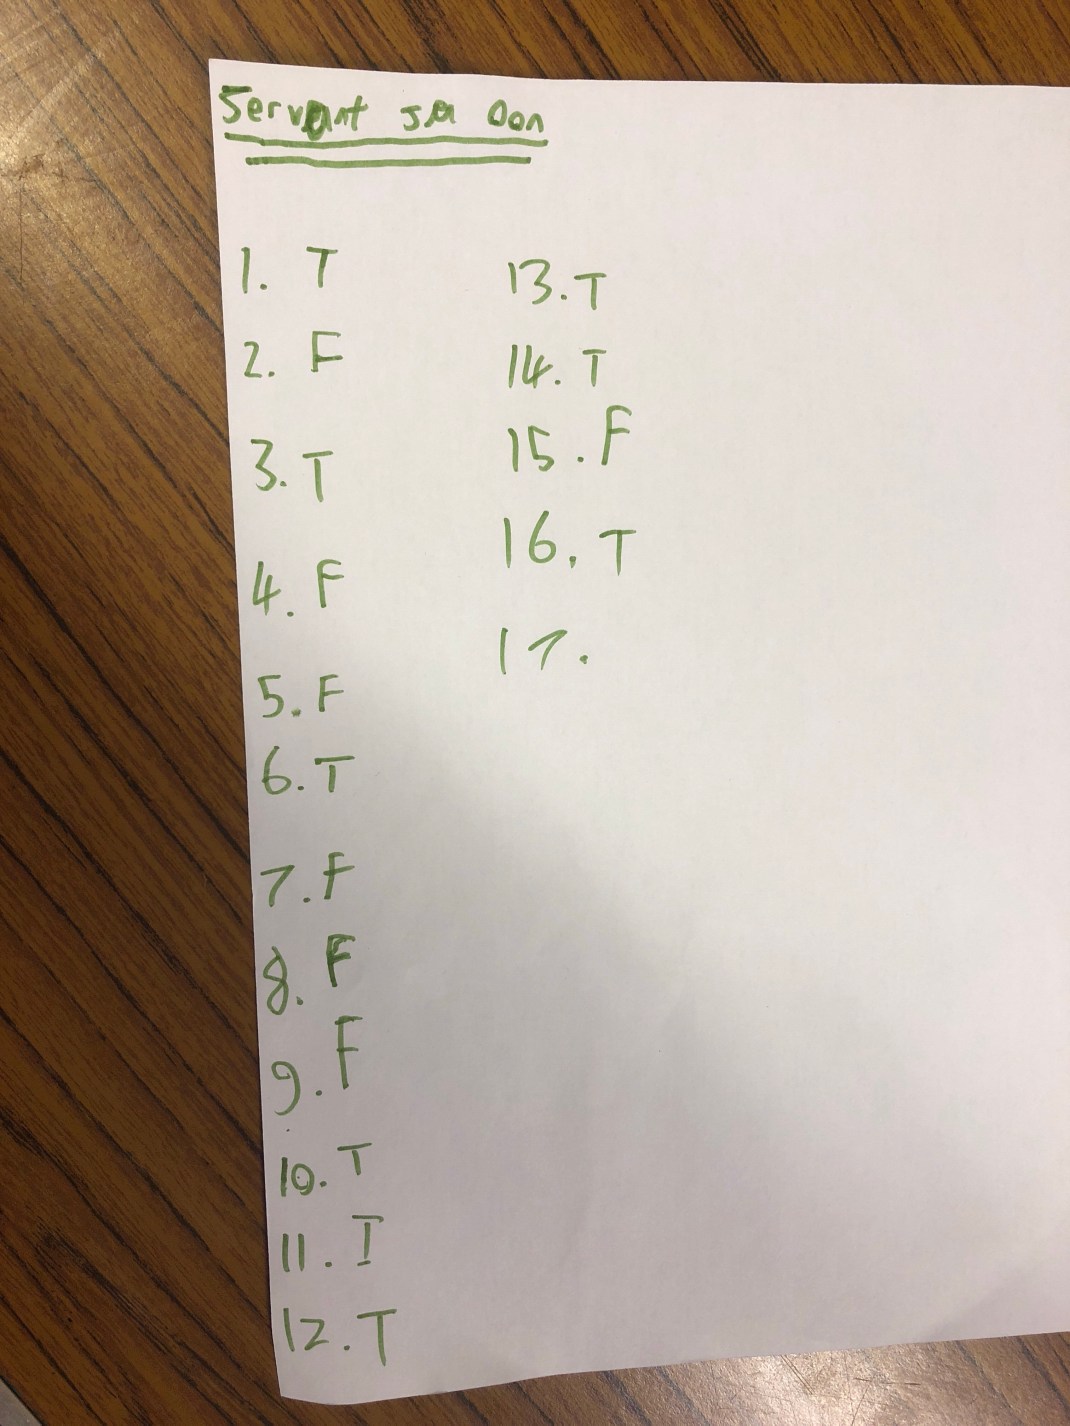 Servant sa Don
1. T
2. F
3. T
4. F
5. F
6. T
7. F
8. F
9. F
10. T
11. I
12. T
13. T
14. T
15. F
16. T
17.